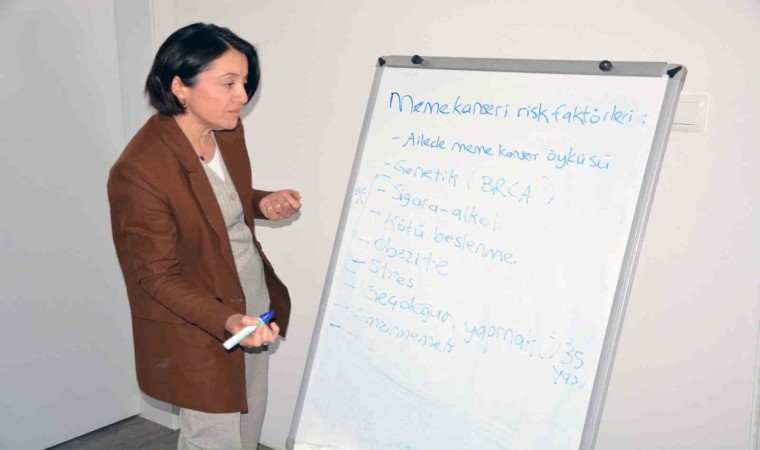 Meme kanseri risk faktörleri :
- Ailede meme kanser öyküsü
- Genetik (BRCA)
* - Sigara-alkol
- Kötü beslenme
- Obezite
- Stres
- Geç doğum yapmak () 35 yaş)
- Emzirmemek
-